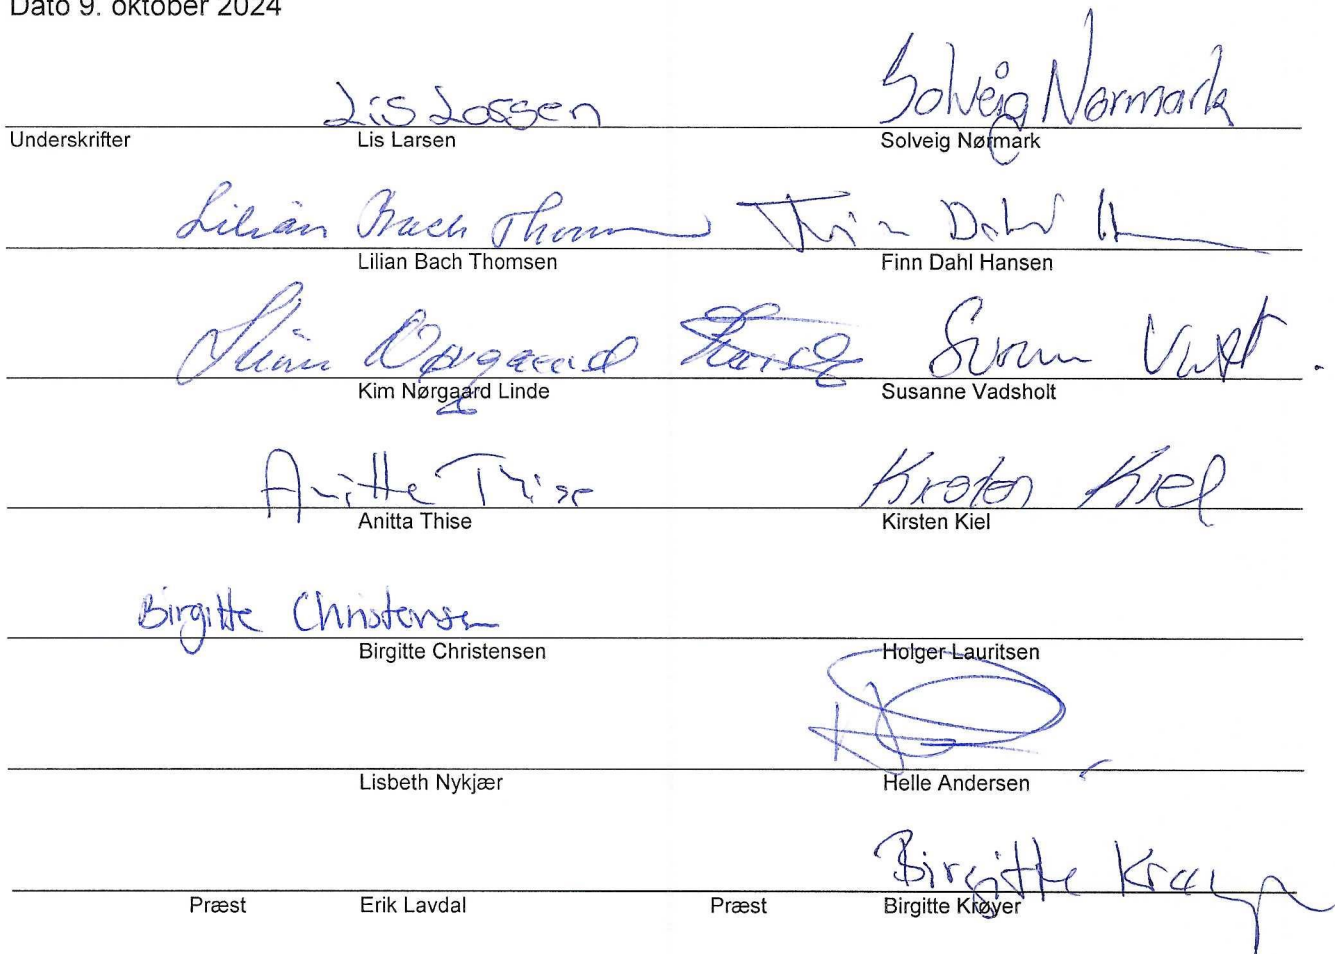 Dato 9. oktober 2024
Lis Larsen Solveig Nørmark
Underskrifter Lis Larsen Solveig Nørmark
Lilian Bach Thomsen Finn Dahl H
Lilian Bach Thomsen Finn Dahl Hansen
Nørgaard
Kim Nørgaard Linde Susanne Vadsholt
Anitta Thise Kirsten Kiel
Anitta Thise Kirsten Kiel
Birgitte Christensen
Birgitte Christensen Holger Lauritsen
Lisbeth Nykjær Helle Andersen
Birgitte Krøyer
Præst Erik Lavdal Præst Birgitte Krøyer